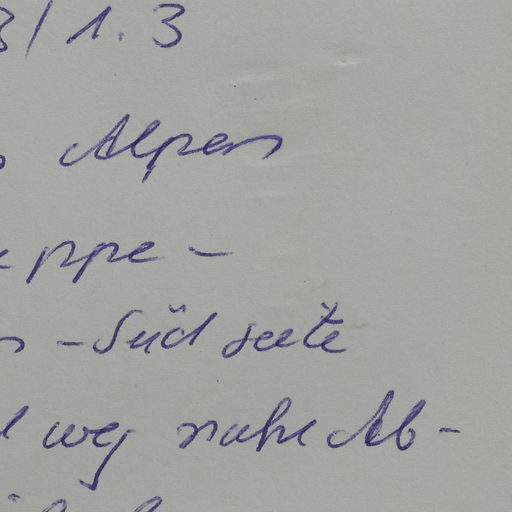 3/1.3
Alpen
ppe -
- Südseite
weg nahe Ab-